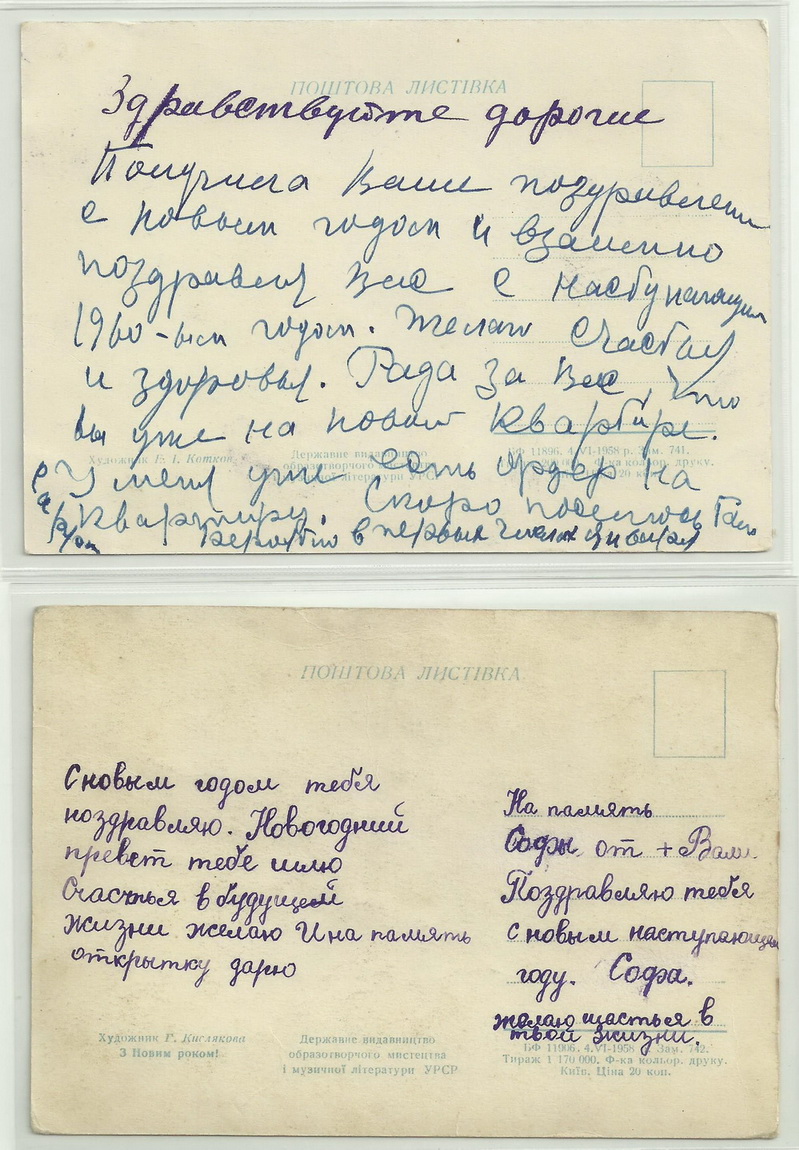 ПОШТОВА ЛИСТІВКА
Здравствуйте дорогие
Получила Ваше поздравлени
с новым годом и взаимно
поздравляя Вас с наступающим
1960-ым годом. Желаю счастья
и здоровья. Рада за Вас, что
вы уже на новой квартире.
Художник Е. І. Котков
Державне видавництво
образотворчого
літератури УРСР
БФ 11896. 4.VI-1958 р. Зам. 741.
Ф-ка кольор. друку.
20 коп.
У меня уже есть ордер на
квартиру. Скоро поселюсь
в первых числах января
ПОШТОВА ЛИСТІВКА
С новым годом тебя
поздравляю. Новогодний
превет тебе шлю
Счастья в будущей
жизни желаю И на память
открытку дарю
На память
Софы от + Вали.
Поздравляю тебя
с новым наступающем
году. Софа.
желаю щастья в
твой жизни.
Художник Г. Кислякова
З Новим роком!
Державне видавництво
образотворчого мистецтва
і музичної літератури УРСР
БФ 11906. 4.VI-1958 р. Зам. 742.
Тираж 1 170 000. Ф-ка кольор. друку.
Київ. Ціна 20 коп.